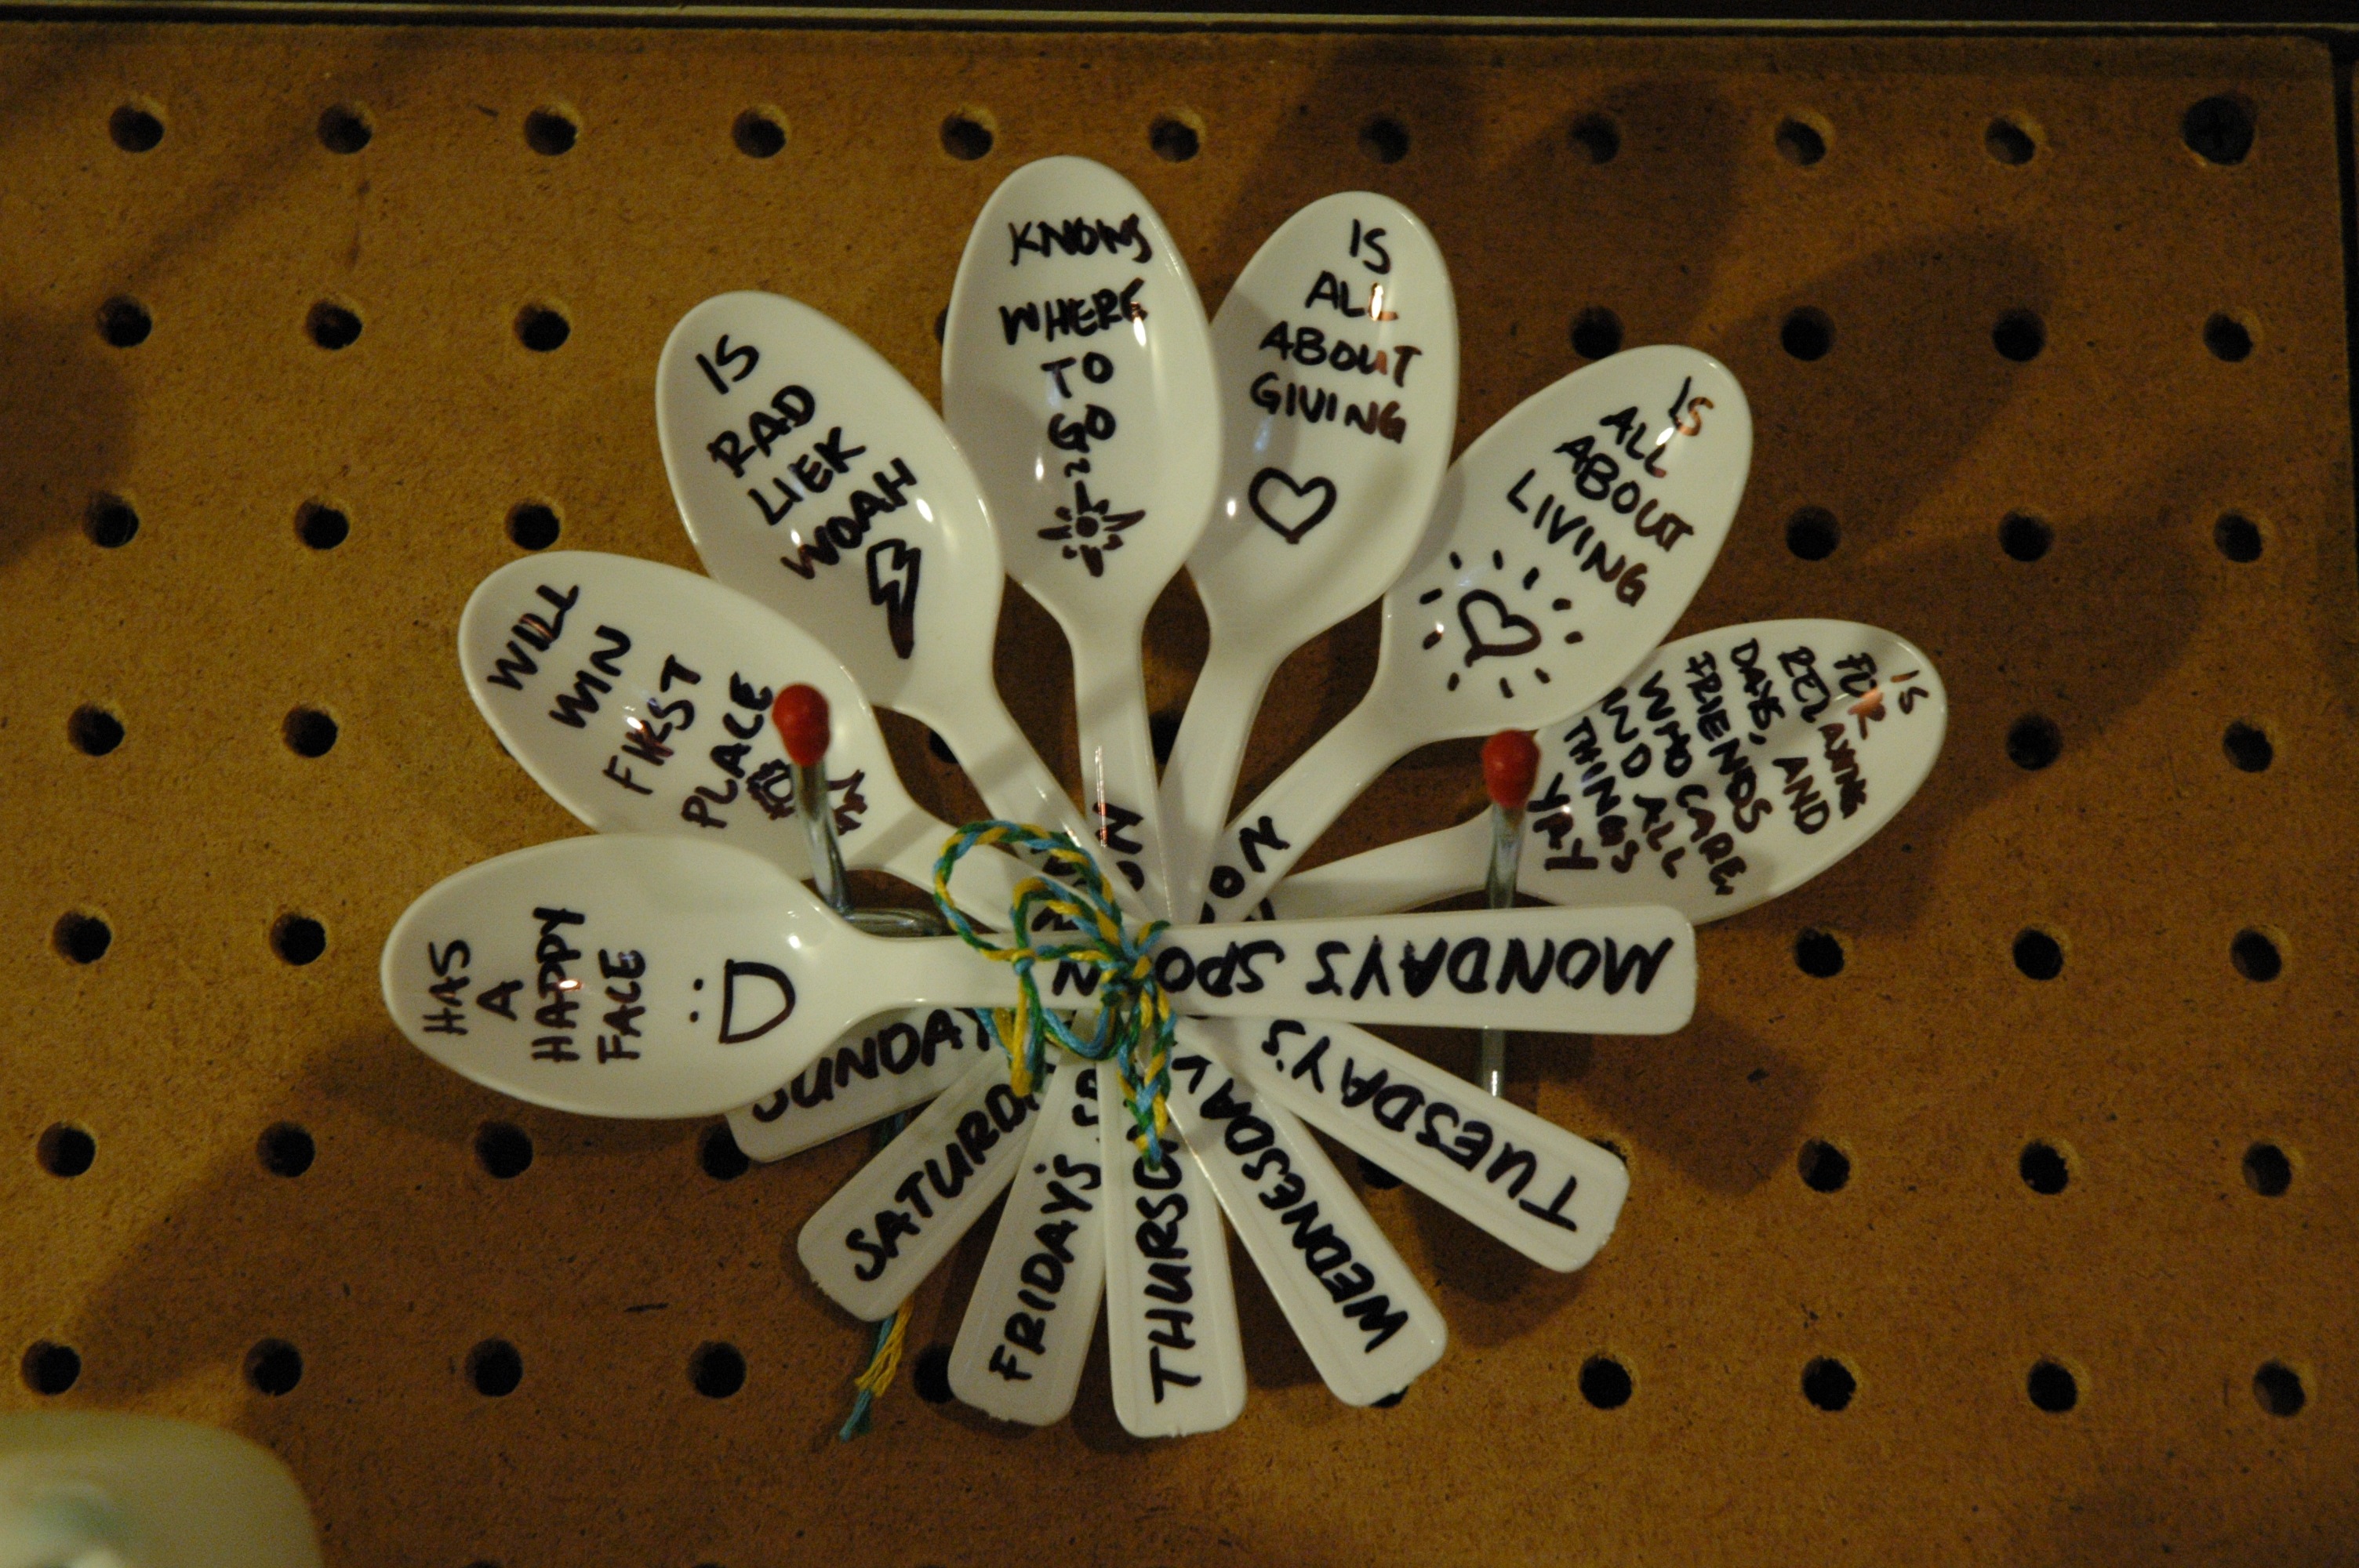 MONDAY'S SPO N
HAS
A
HAPPY
FACE
TUESDAY'S
WILL
WIN
FIRST
PLACE
WEDNESDAY
IS
RAD
LIEK
WOAH
THURSD
KNOWS
WHERE
TO
GO
FRIDAY'S SP
IS
ALL
ABOUT
GIVING
SATURDA
OON
IS
ALL
ABOUT
LIVING
SUNDAY
IS
FUR
RELAXING
DAYS, AND
FRIENDS
WHO CARE,
AND ALL
THINGS
YAY